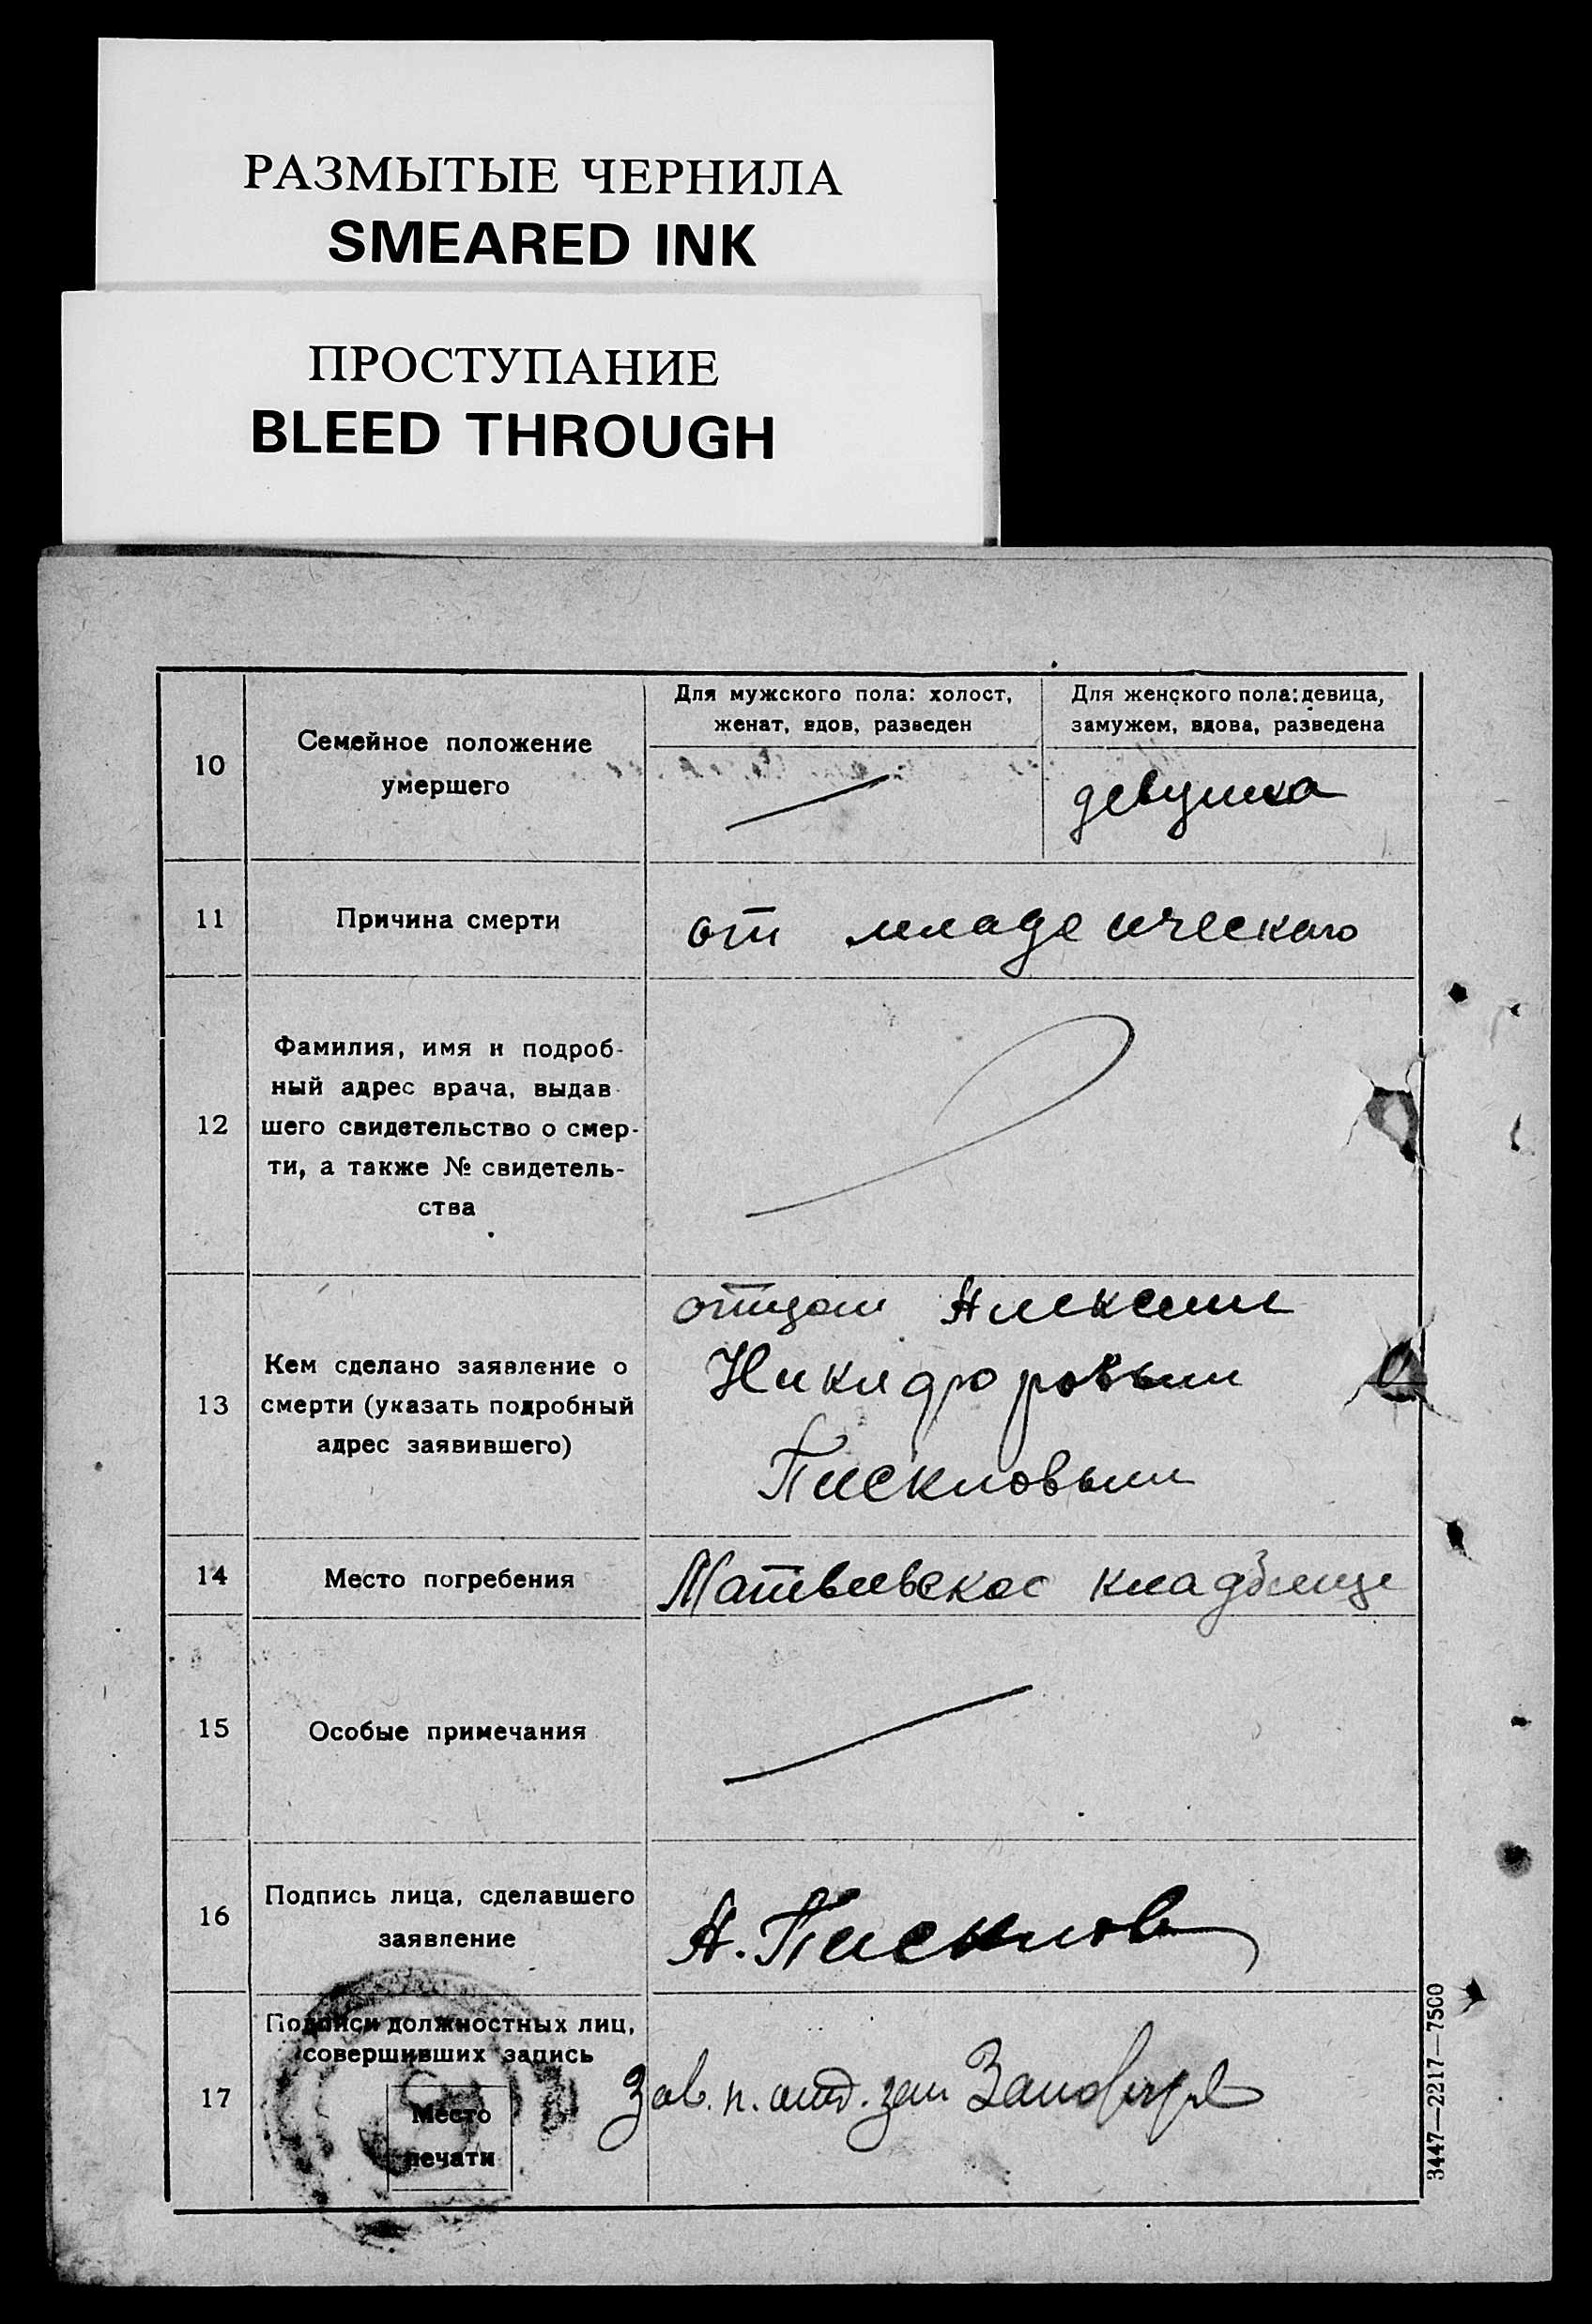 РАЗМЫТЫЕ ЧЕРНИЛА
SMEARED INK
ПРОСТУПАНИЕ
BLEED THROUGH
10
Семейное положение
умершего
Для мужского пола: холост,
женат, вдов, разведен
Для женского пола: девица,
замужем, вдова, разведена
девушка
11
Причина смерти
от младенческаго
12
Фамилия, имя и подроб-
ный адрес врача, выдав
шего свидетельство о смер-
ти, а также № свидетель-
ства
13
Кем сделано заявление о
смерти (указать подробный
адрес заявившего)
отцом Алексеем
Никифоровым
Пискловым
14
Место погребения
Матвеевское кладбище
15
Особые примечания
16
Подпись лица, сделавшего
заявление
А. Писклов
17
Подписи должностных лиц,
совершивших запись
Место
печати
Зав. п. отд.
3447—2217—7500